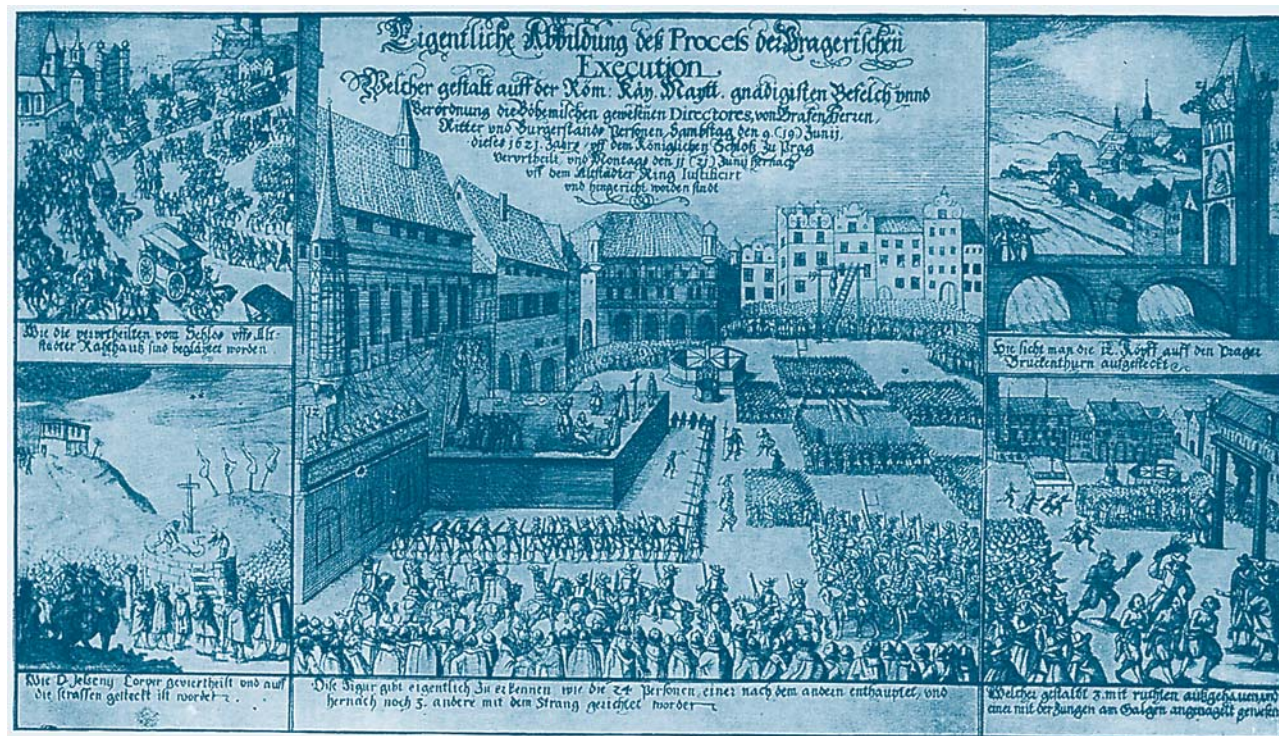 Eigentliche Abbildung deß Process der Pragerischen
Execution
Welcher gestalt auff der Röm: Käy. Maytt. gnädigisten Befelch vnnd
Verordnung die Böhemischen gewesenen Directores, von Grafen Herrn,
Ritter vnd Burgerstands Personen, Sambstag den 9. (19) Junij,
dieses 1621. Jahrs vff dem Königlichen Schloß zu Prag
Verurtheilt, vnd Montags den 11 (21) Junij hernach
vff dem Altstädter Ring Iustificirt
vnd hingericht worden sindt
Wie die verurtheilten vom Schlos vffs Alt-
städter Rahthauß sind beglaitet worden.
Hie sicht man die 12. Köpff auff den Prager
Bruckenthurn aufgesteckt
12
Wie D. Jeſseny Corper geviertheilt vnd auff
die strassen gesteckt ist worden
Dise Figur gibt eigentlich zu erkennen wie die 24 Personen, einer nach dem andern enthauptet, vnd
hernach noch 3. andere mit dem Strang gerichtet worden
Welcher gestalt 3. mit ruthten außgehauen, vnd
einer mit der Zungen am Galgen angenagelt gewesen